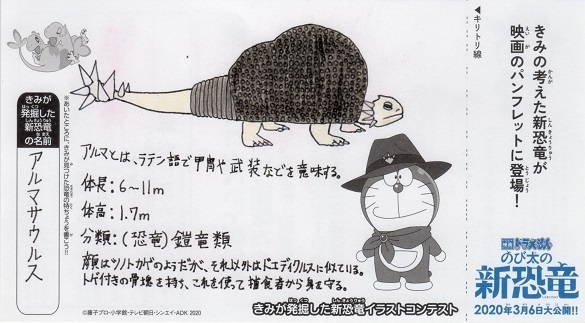 きみが
発掘した
新恐竜
の名前
アルマサウルス
※あいたところに、きみが見つけた恐竜の特ちょうを書こう!!
アルマとは、ラテン語で甲冑や武装などを意味する。
体長:6〜11m
体高:1.7m
分類:(恐竜)鎧竜類
顔はツノトカゲのようだが、それ以外はドエディクルスに似ている。
トゲ付きの骨塊を持ち、これを使って捕食者から身を守る。
きみが発掘した新恐竜イラストコンテスト
©藤子プロ・小学館・テレビ朝日・シンエイ・ADK 2020
◀キリトリ線
きみの考えた新恐竜が
映画のパンフレットに登場!
映画ドラえもん
のび太の
新恐竜
2020年3月6日大公開!!